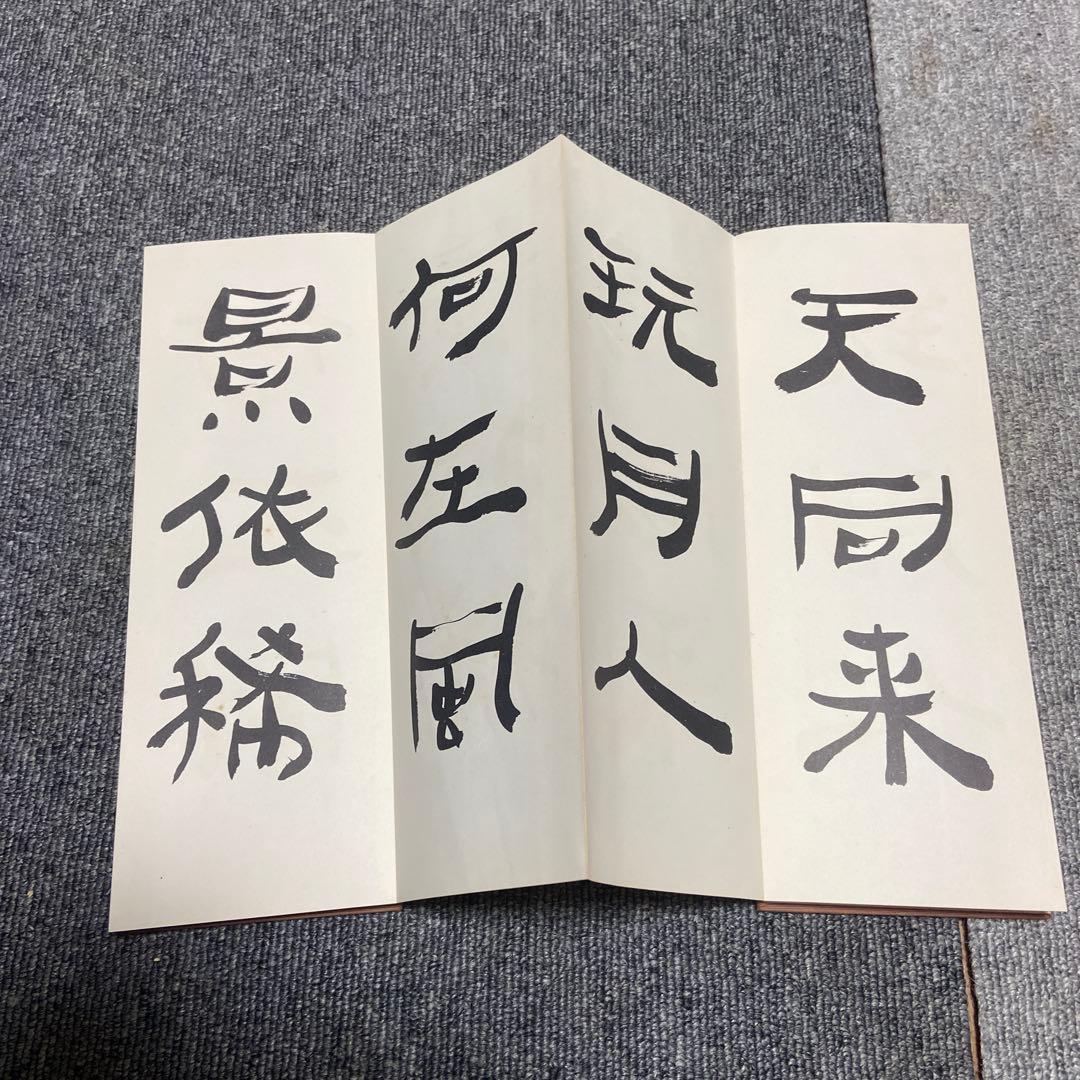 天同来
玩月人
何在風
景依稀